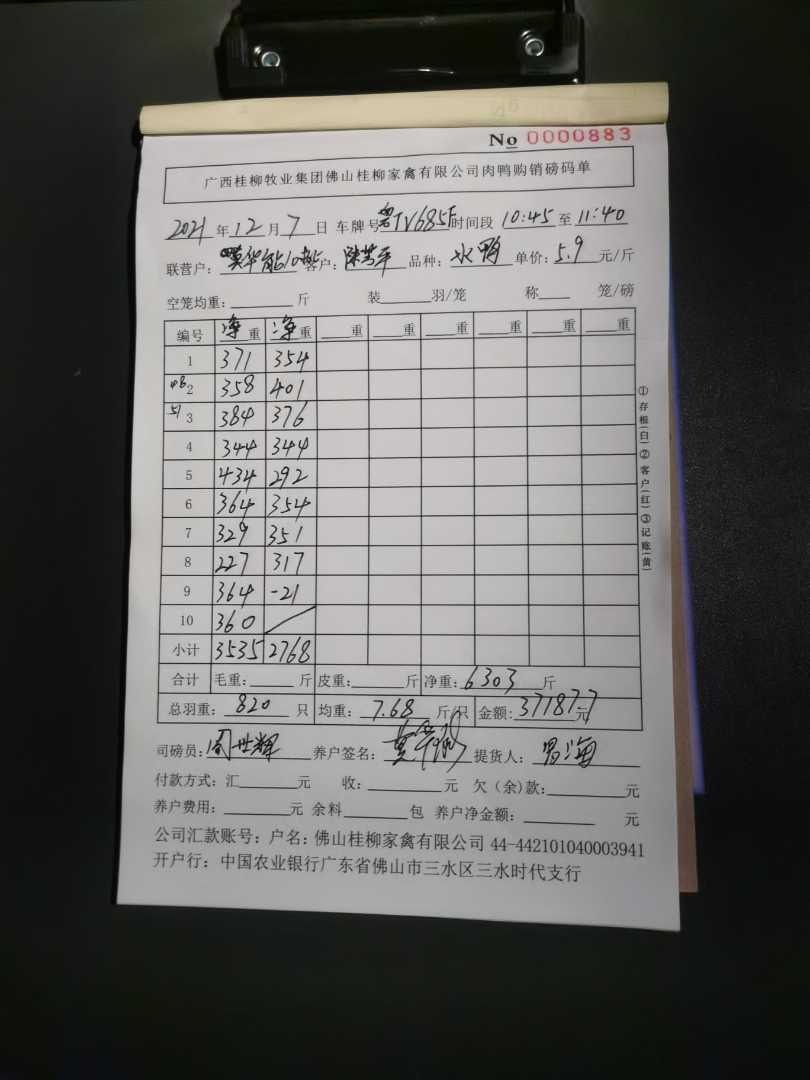 No 0000883
广西桂柳牧业集团佛山桂柳家禽有限公司肉鸭购销磅码单
2021年12月7日 车牌号 粤TV685F 时间段 10:45至11:40
联营户： 客户：陈芳平 品种：水鸭 单价：5.9元/斤
空笼均重： 斤 装 羽/笼 称 笼/磅
编号 净重 净重 重 重 重 重 重 重
1 371 354
48 2 358 401
51 3 384 376
4 344 344
5 434 292
6 364 354
7 329 351
8 227 317
9 364 -21
10 360
小计 3535 2768
合计 毛重： 斤 皮重： 斤 净重：6303斤
总羽重：820只 均重：7.68斤/只 金额：37187.7元
司磅员：周世辉 养户签名： 提货人：
付款方式：汇 元 收： 元 欠（余）款： 元
养户费用： 元 余料 包 养户净金额： 元
公司汇款账号：户名：佛山桂柳家禽有限公司 44-442101040003941
开户行：中国农业银行广东省佛山市三水区三水时代支行
①存根(白)②客户(红)③记账(黄)